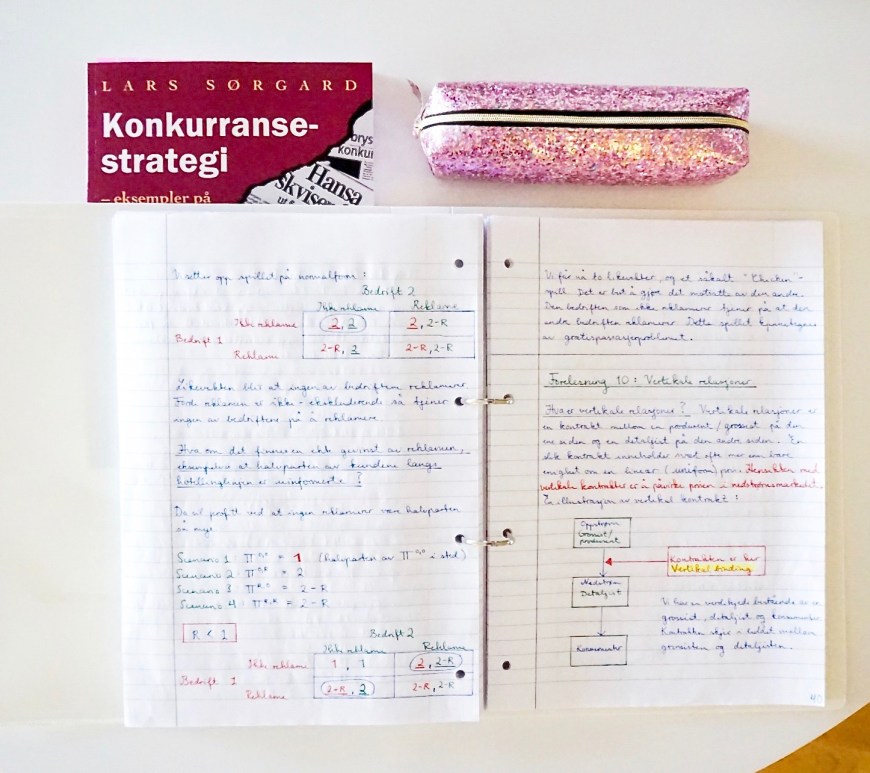 LARS SØRGARD
Konkurranse-
strategi
– eksempler på
konkur
Hansa
skvisen
Vi setter opp spillet på normalform:
Bedrift 2
Ikke reklame Reklame
Ikke reklame 2, 2 2, 2-R
Bedrift 1
Reklame 2-R, 2 2-R, 2-R
Likevekten blir at ingen av bedriftene reklamerer
Fordi reklamen er ikke-ekskluderende så tjener
ingen av bedriftene på å reklamere
Hva om det finnes en ekte gevinst av reklamen,
eksempelvis at halvparten av kundene langs
hotellinglinjen er uinformerte?
Da vil profitt ved at ingen reklamerer være halvparten
så mye
Scenario 1: π⁰,⁰ = 1 (halvparten av π⁰,⁰ i sted)
Scenario 2: π⁰,ᴿ = 2
Scenario 3: πᴿ,⁰ = 2-R
Scenario 4: πᴿ,ᴿ = 2-R
R < 1
Bedrift 2
Ikke reklame Reklame
Ikke reklame 1, 1 2, 2-R
Bedrift 1
Reklame 2-R, 2 2-R, 2-R
Vi får nå to likevekter, og et såkalt "Chicken"-
spill. Det er best å gjøre det motsatte av den andre.
Den bedriften som ikke reklamerer tjener på at den
andre bedriften reklamerer. Dette spillet kjennetegnes
av gratispassasjerproblemet.
Forelesning 10: Vertikale relasjoner
Hva er vertikale relasjoner? Vertikale relasjoner er
en kontrakt mellom en produsent/grossist på den
ene siden og en detaljist på den andre siden. En
slik kontrakt inneholder som oftest mer enn bare
enighet om en lineær (uniform) pris. Hensikten med
vertikale kontrakter er å påvirke prisen i nedstrømsmarkedet.
En illustrasjon av vertikal kontrakt:
Oppstrøm
Grossist/
produsent
Kontrakten er her
Vertikal binding
Nedstrøm
Detaljist
Vi har en verdikjede bestående av en
grossist, detaljist og konsumenter.
Kontrakten skjer i leddet mellom
grossisten og detaljisten.
Konsumenter